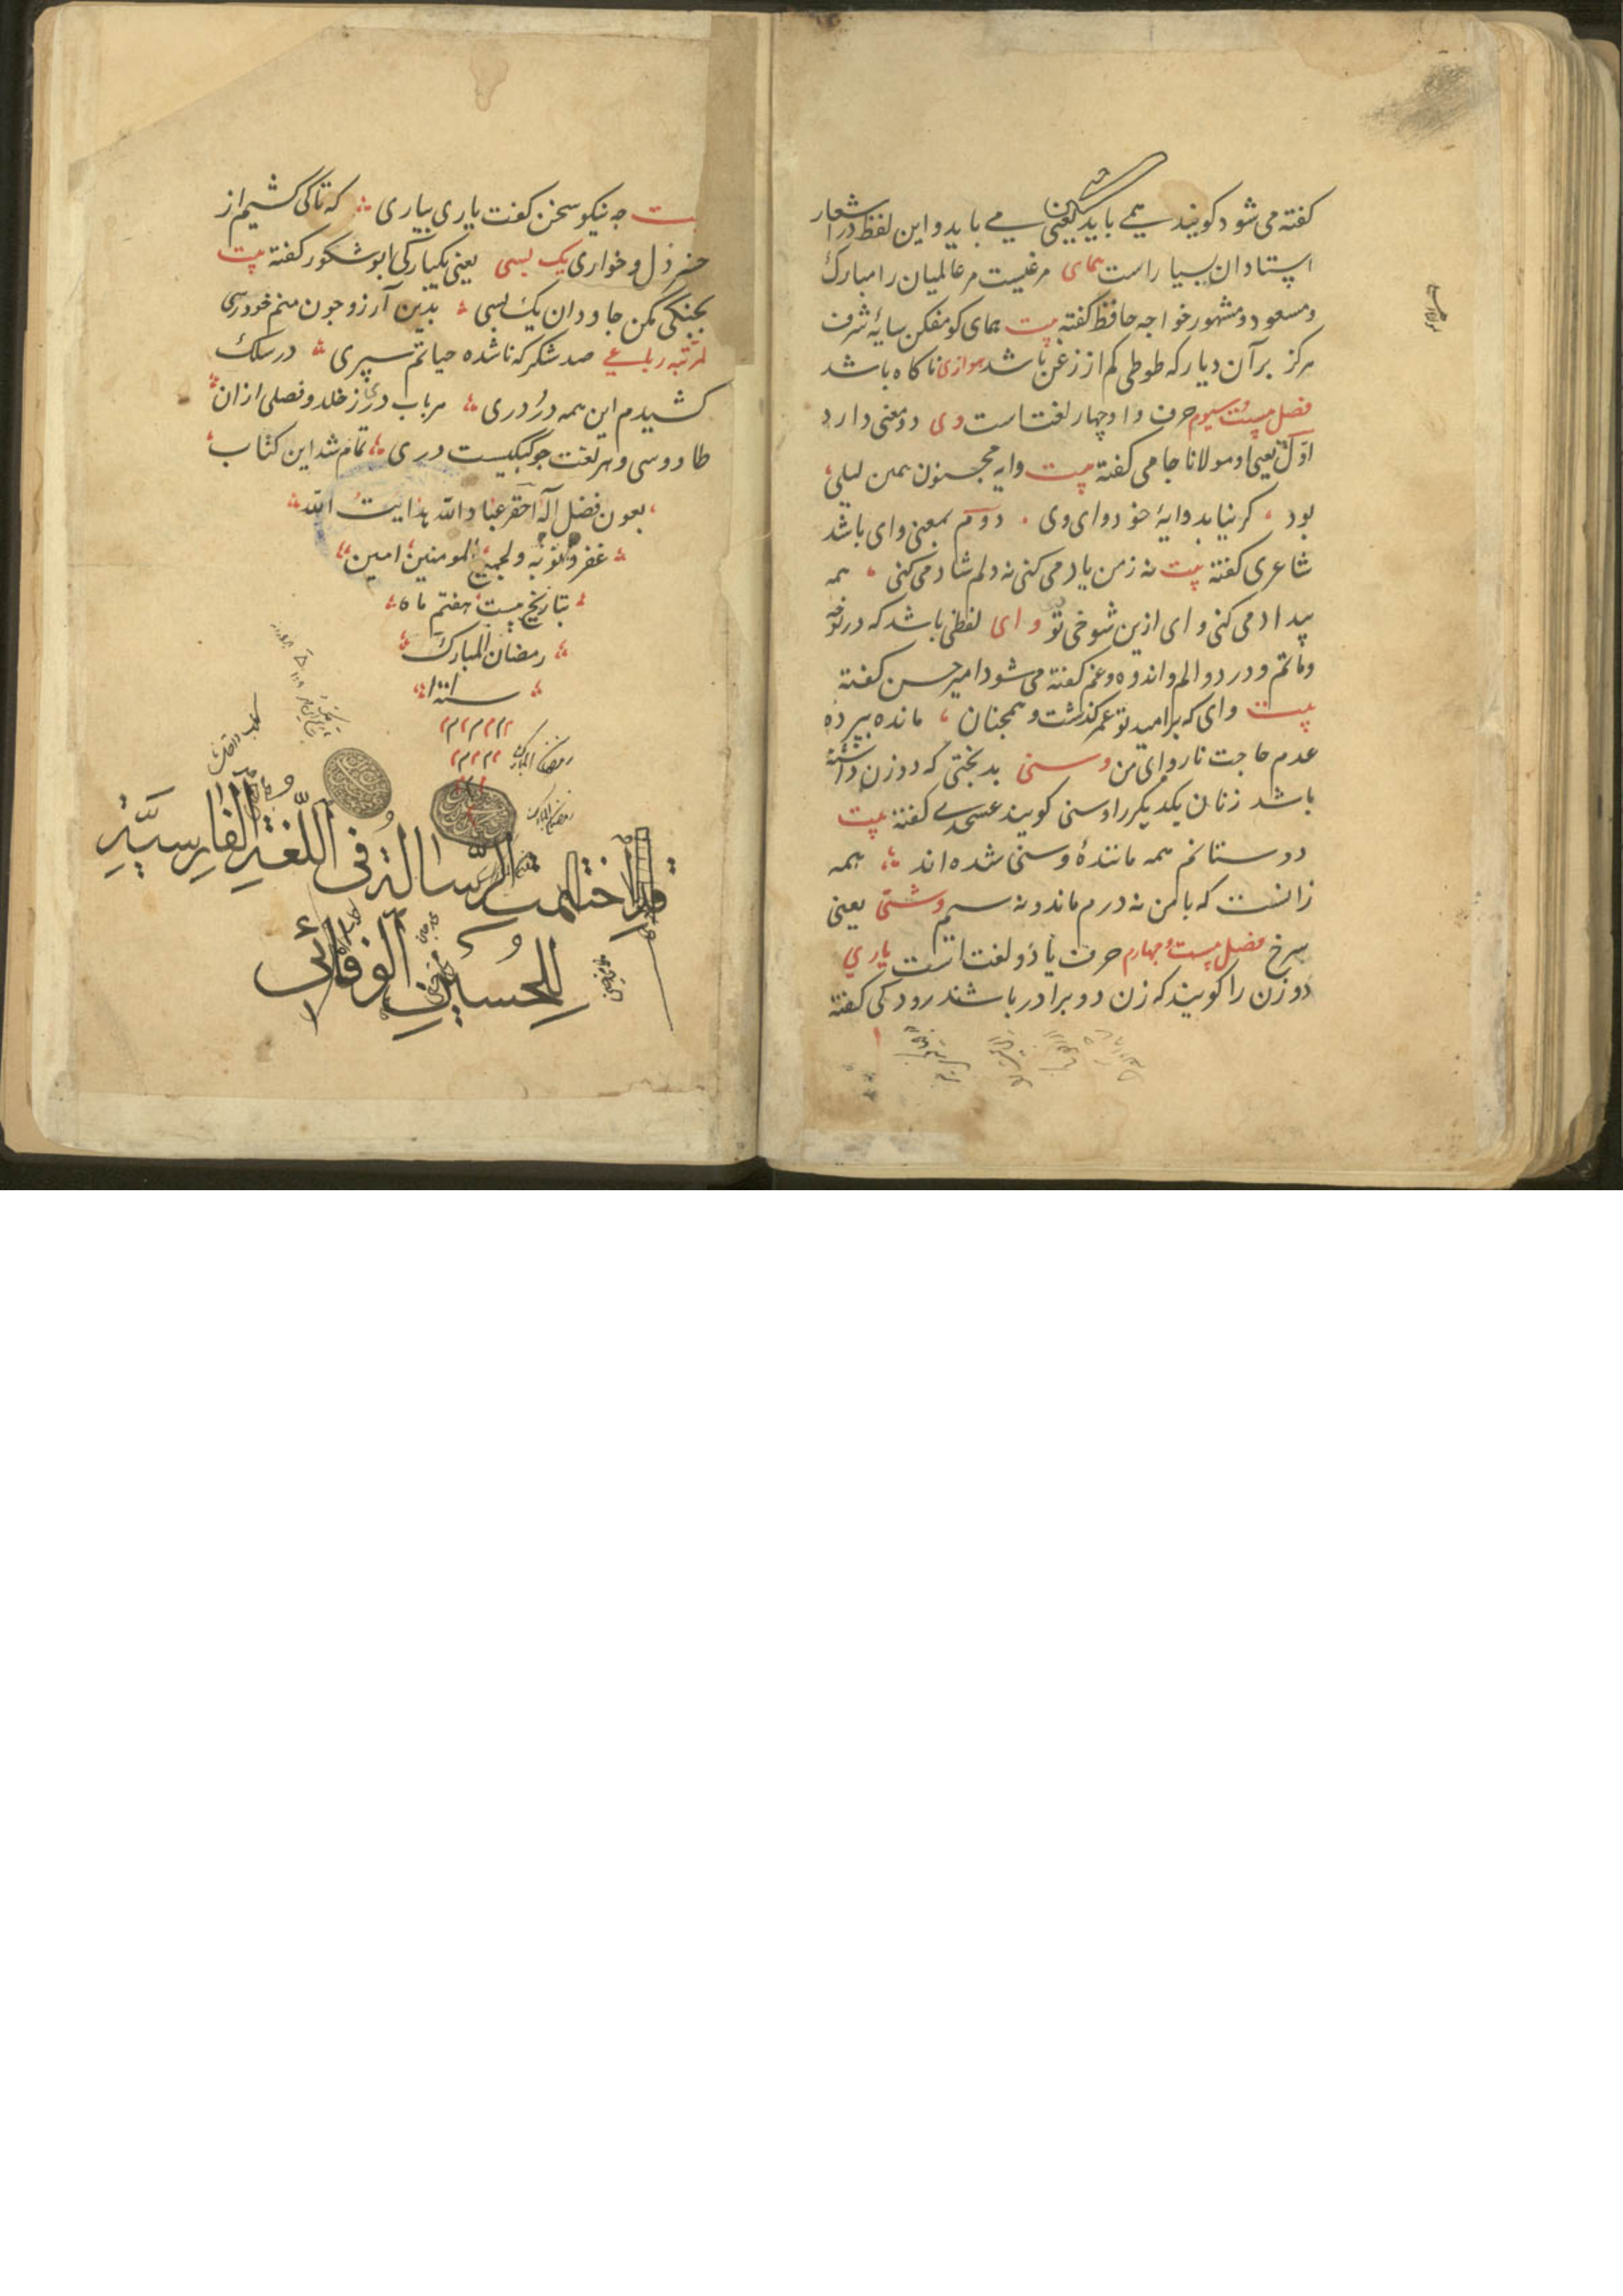 کفته می شود کویند همے باید یعنی مے باید و این لفظ در اشعار
استادان بسیار است همای مرغیست مر عالمیان را مبارک
و مسعود و مشهور خواجه حافظ کفته بیت همای کو مفکن سایهٔ شرف
هرکز بر آن دیار که طوطی کم از زغن باشد هوازی ناکاه باشد
فصل بیست و سیوم حرف واو چهار لغتست وی دو معنی دارد
اول یعنی او مولانا جامی کفته بیت وایه مجنون همین لیلی
بود کر نیابد وایهٔ خود وای وی دوم بمعنی وای باشد
شاعری کفته بیت نه ز من یاد می کنی نه دلم شاد می کنی همه
بیداد می کنی وای ازین شوخی تو وای لفظی باشد که در نوحه
و ماتم و درد و الم و اندوه و غم کفته می شود امیر حسن کفته
بیت وای که بر امید تو عمر کذشت و همچنان مانده بپرده
عدم حاجت ناروای من وسنی بدبختی که دو زن داشته
باشد زنان یکدیکر را وسنی کویند عسجدے کفته بیت
دوستانم همه مانندهٔ وسنی شده اند همه
زانست که با من نه درم ماند و نه سیم وشتی یعنی
سرخ فصل بیست و چهارم حرف یا دو لغتست یاری
دو زن را کویند که زن دو برادر باشند رودکی کفته
بیت چه نیکو سخن کفت یاری بیاری که تا کی کشیم از
خسر ذل و خواری یک بسی یعنی یکبارکی ابو شکور کفته بیت
بجنکی مکن جاودان یک بسی بدین آرزو چون منم خود رسی
لمرتبه رباعے صد شکر که ناشده حیاتم سپری در سلک
کشیدم این همه در دری هر باب دری ز خلد و فصلی از ان
طاووسی و هر لغت چو کبکیست دری تمام شد این کتاب
بعون فضل آله احقر عباد الله هدایت الله
غفر ذنوبه و لجمیع المومنین امین
بتاریخ بیست هفتم ماه
رمضان المبارک
سنه ۱۰۰۱
رمضان المبارک
قد اختتمت الرسالة فی اللغة الفارسیة
للحسین الوفائی